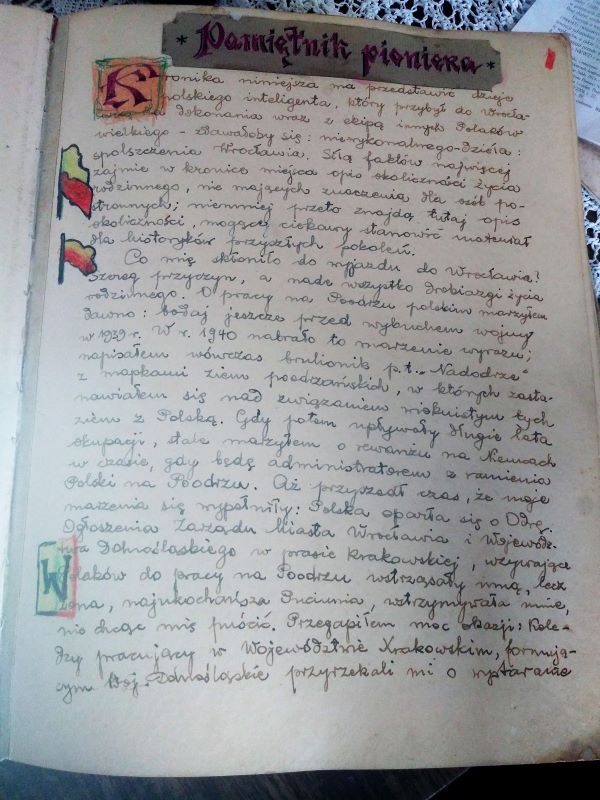 * Pamiętnik pioniera *
Kronika niniejsza ma przedstawić dzieje
polskiego inteligenta, który przybył do Wrocła-
wia dla dokonania wraz z ekipą innych Polaków
wielkiego - zdawałoby się: niewykonalnego-dzieła:
spolszczenia Wrocławia. Siłą faktów najwięcej
zajmie w kronice miejsca opis okoliczności życia
rodzinnego, nie mających znaczenia dla osób po-
stronnych; niemniej przeto znajdą tutaj opis
okoliczności, mogącej ciekawy stanowić materiał
dla historyków przyszłych pokoleń.
Co mię skłoniło do wyjazdu do Wrocławia?
Szereg przyczyn, a nade wszystko drobiazgi życia
rodzinnego. O pracy na Poodrzu polskim marzyłem
dawno: bodaj jeszcze przed wybuchem wojny
w 1939 r. W r. 1940 nabrało to marzenie wyrazu;
napisałem wówczas brulionik p.t. „Nadodrze"
z mapkami ziem poodrzańskich, w których zasta-
nawiałem się nad związaniem wiekuistym tych
ziem z Polską. Gdy potem upływały długie lata
okupacji, stale marzyłem o rewanżu na Niemcach
w czasie, gdy będę administratorem z ramienia
Polski na Poodrzu. Aż przyszedł czas, że moje
marzenia się wypełniły: Polska oparła się o Odrę.
Ogłoszenia Zarządu Miasta Wrocławia i Wojewódz-
twa Dolnośląskiego w prasie krakowskiej, wzywające
Polaków do pracy na Poodrzu wstrząsały mną, lecz
żona, najukochańsza Duciunia, wstrzymywała mnie,
nie chcąc mię puścić. Przegapiłem moc okazji: Kole-
dzy pracujący w Województwie Krakowskim, formują-
cym Woj. Dolnośląskie przyrzekali mi o wystaranie